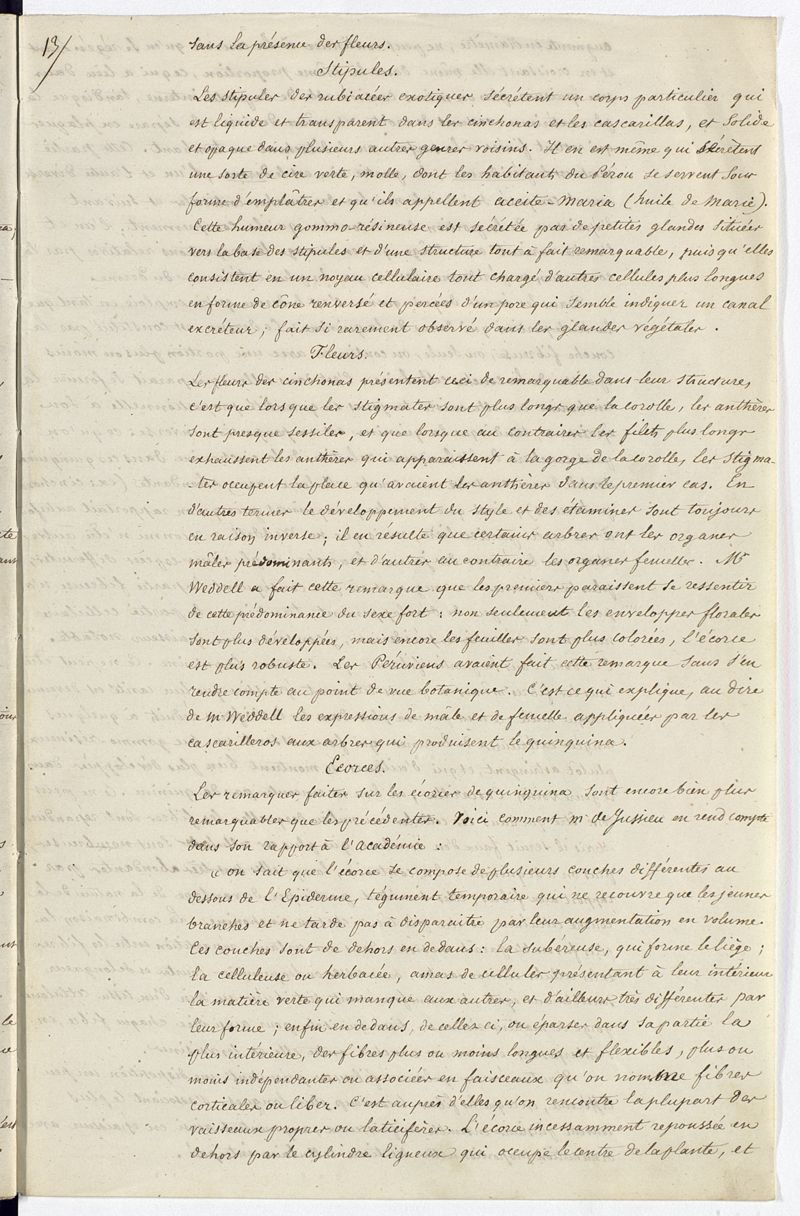 13/
sans la présence des fleurs.
Stipules.
Les stipules des rubiacées exotiques sécrétent un corps particulier qui
est liquide et transparent dans les cinchonas et les cascarillas, et solide
et opaque dans plusieurs autres genres voisins. Il en est même qui sécrètent
une sorte de cire verte, molle, dont les habitants du Pérou se servent sous
forme d'emplâtres et qu'ils appellent aceite-Maria (huile de Marie).
Cette humeur gommo-résineuse est secrétée par de petites glandes situées
vers la base des stipules et d'une structure tout à fait remarquable, puisqu'elles
consistent en un noyau cellulaire tout chargé d'autres cellules plus longues
en forme de cône renversé et percées d'un pore qui semble indiquer un canal
excréteur; fait si rarement observé dans les glandes végétales.
Fleurs.
Les fleurs des cinchonas présentent ceci de remarquable dans leur structure,
c'est que lorsque les stigmates sont plus longs que la corolle, les anthères
sont presque sessiles, et que lorsque au contraires les filets plus longs
exhaussent les anthères qui apparaissent à la gorge de la corolle, les stigma-
-tes occupent la place qu'avaient les anthères dans le premier cas. En
d'autres termes le développement du style et des étamines sont toujours
en raison inverse; il en résulte que certains arbres ont les organes
mâles prédominants, et d'autres au contraire les organes femelles. Mr
Weddell a fait cette remarque que les premiers paraissent se ressentir
de cette prédominance du sexe fort: non seulement les enveloppes florales
sont plus développées, mais encore les feuilles sont plus colorées, l'écorce
est plus robuste. Les Péruviens avaient fait cette remarque sans s'en
rendre compte au point de vue botanique. C'est ce qui explique, au dire
de M Weddell les expressions de male et de femelle appliquées par les
cascarilleros aux arbres qui produisent le quinquina.
Ecorces.
Les remarques faites sur les écorces de quinquina sont encore bien plus
remarquables que les précédentes. Voici comment M de Jussieu en rend compte
dans son rapport à l'académie:
"on sait que l'écorce se compose de plusieurs couches différentes au
dessous de l'Epiderme, tégument temporaire qui ne recouvre que les jeunes
branches et ne tarde pas à disparaitre par leur augmentation en volume.
Ces couches sont de dehors en dedans: la subéreuse, qui forme le liège;
la celluleuse ou herbacée, amas de cellules présentant à leur intérieur
la matière verte qui manque aux autres, et d'ailleurs très différentes par
leur forme; enfin en dedans, de celles ci, ou éparses dans sa partie la
plus intérieure, des fibres plus ou moins longues et flexibles, plus ou
moins indépendantes ou associées en faisceaux qu'on nomme fibres
corticales ou liber. C'est auprès d'elles qu'on rencontre la plupart des
vaisseaux propres ou laticifères. L'écorce incessamment repoussée en
dehors par le cylindre ligneux qui occupe le centre de la plante, et